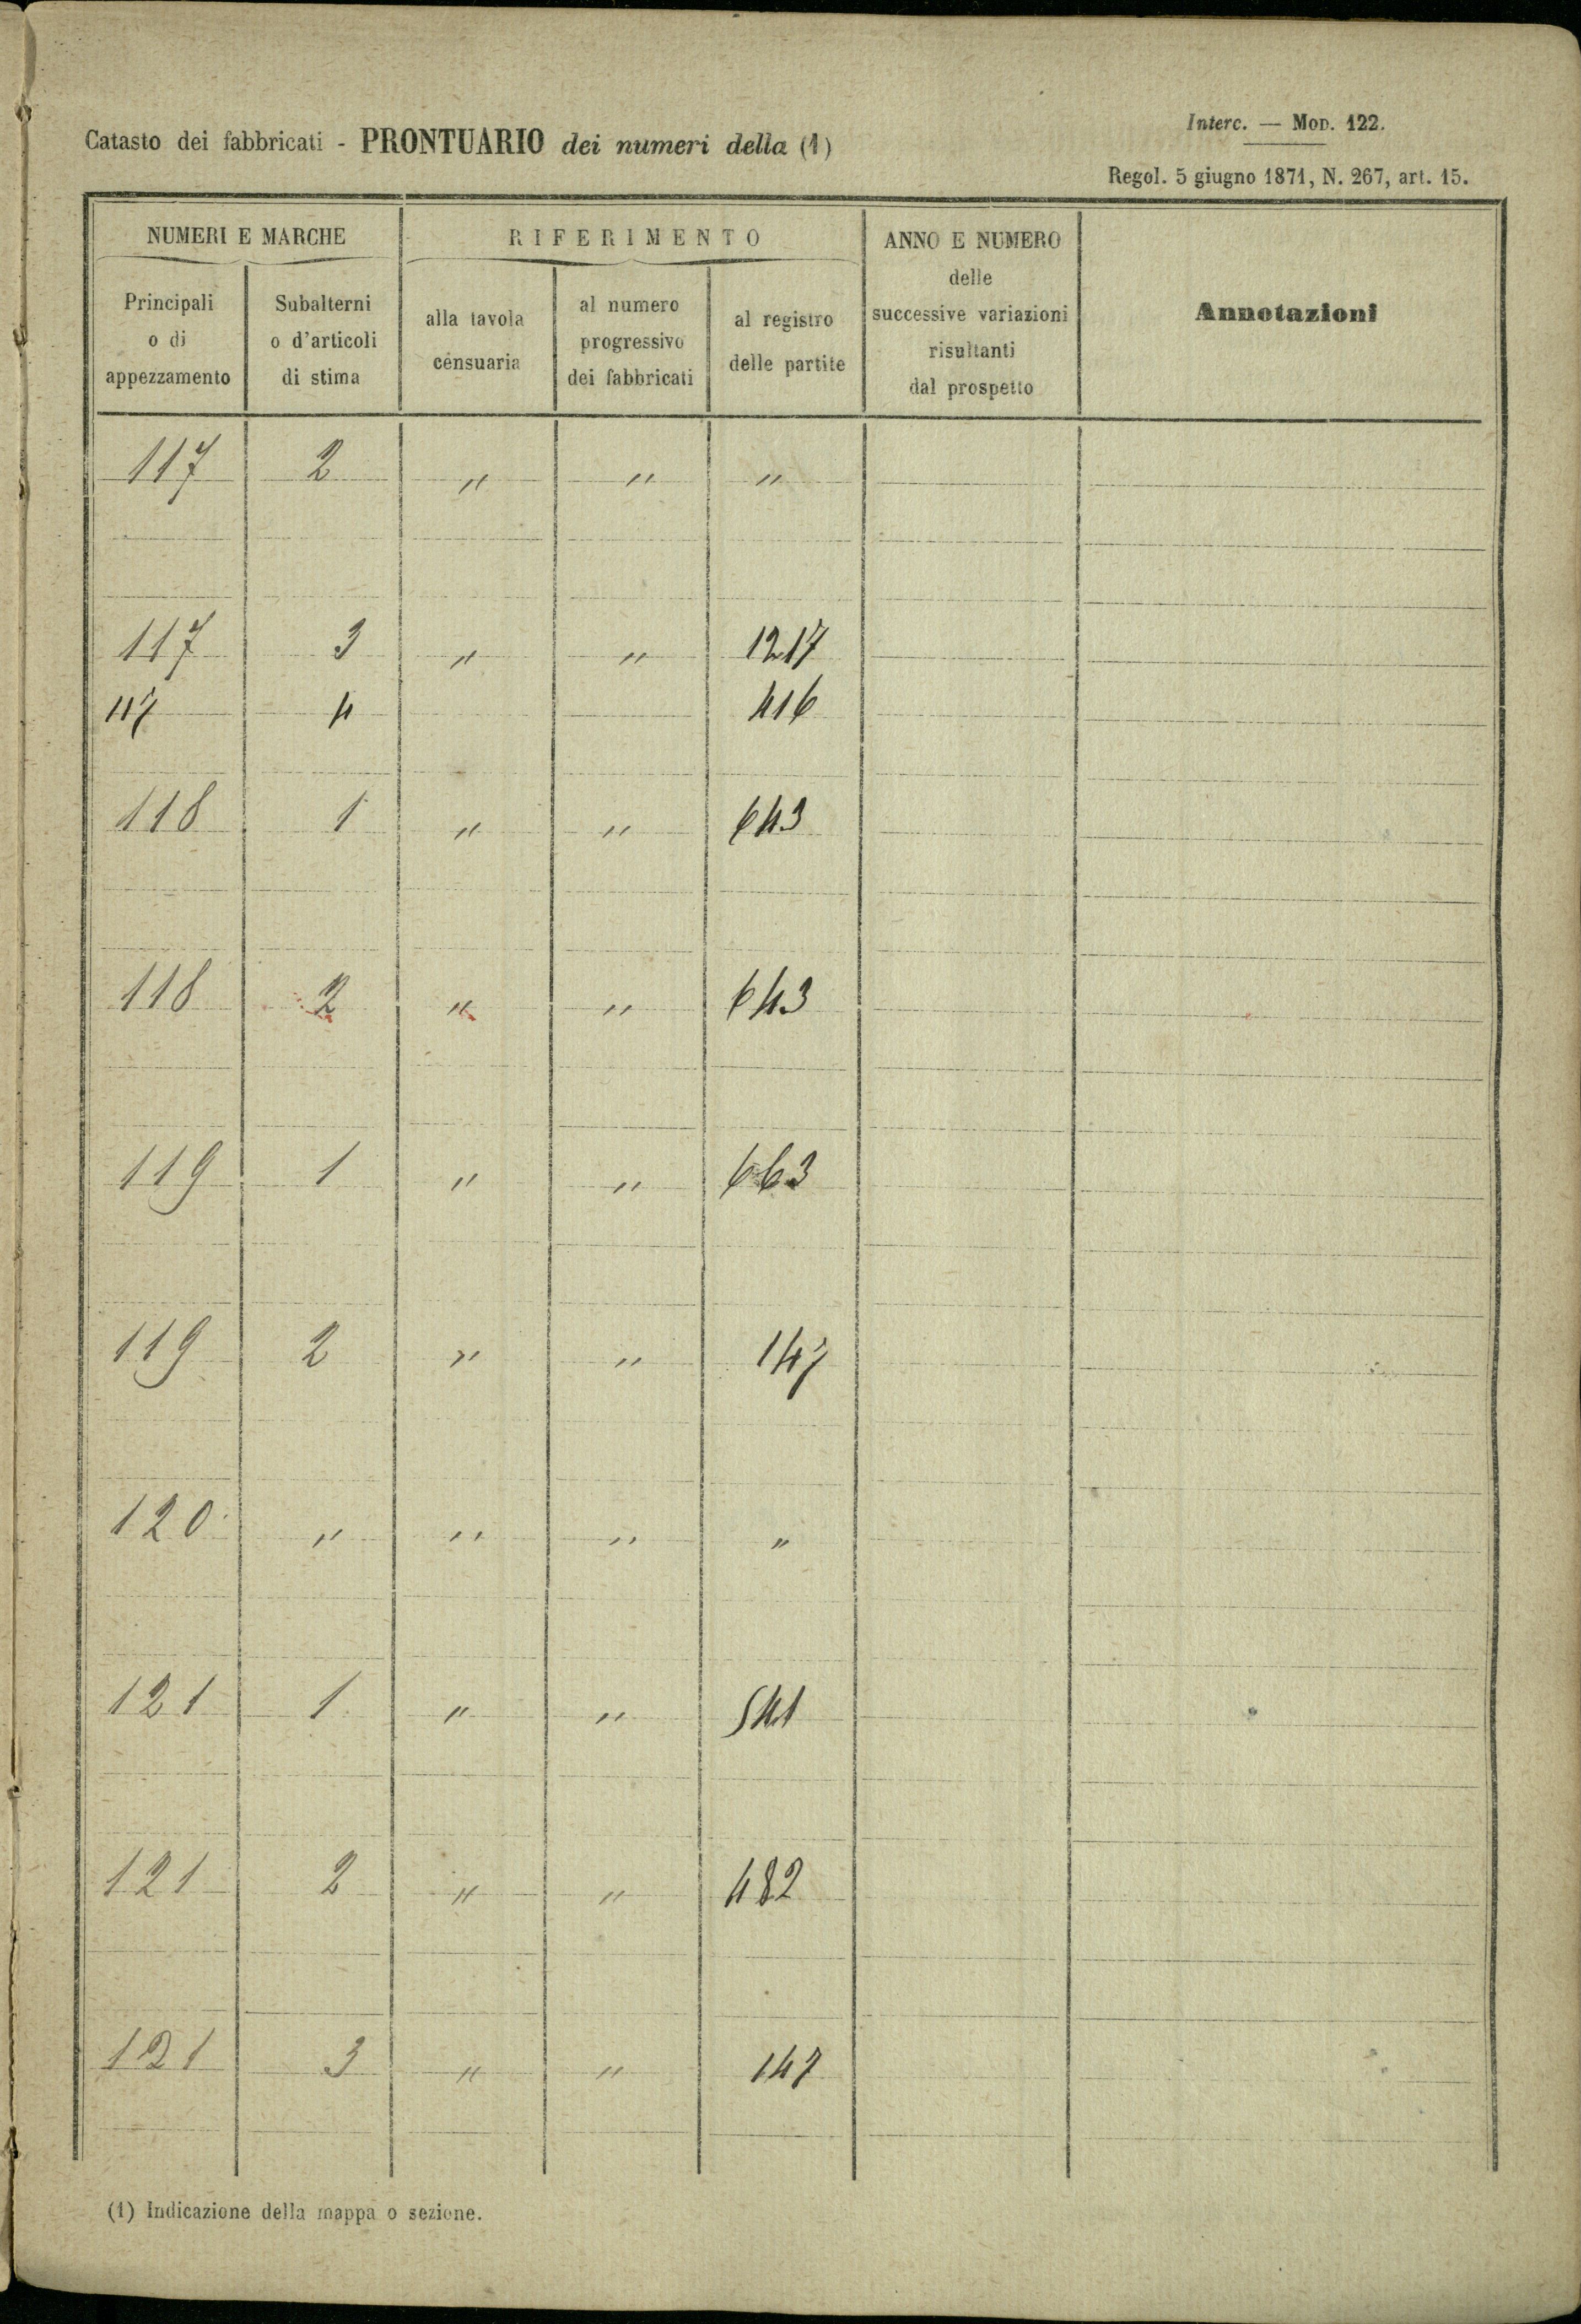 Catasto dei fabbricati - PRONTUARIO dei numeri della (1)
Interc. — Mod. 122.
Regol. 5 giugno 1871, N. 267, art. 15.
NUMERI E MARCHE
RIFERIMENTO
ANNO E NUMERO
delle
successive variazioni
risultanti
dal prospetto
Annotazioni
Principali
o di
appezzamento
Subalterni
o d'articoli
di stima
alla tavola
censuaria
al numero
progressivo
dei fabbricati
al registro
delle partite
117 2 " " "
117 3 " " 1217
117 4 416
118 1 " " 643
118 2 " " 643
119 1 " " 663
119 2 " " 147
120 " " " "
121 1 " " 541
121 2 " " 482
121 3 " " 147
(1) Indicazione della mappa o sezione.